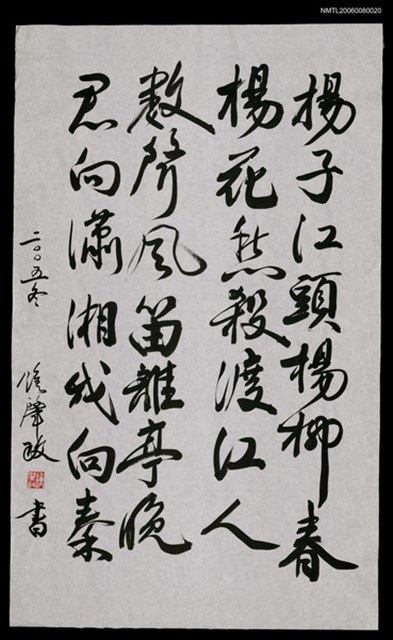 NMTL20060080020
揚子江頭楊柳春
楊花愁殺渡江人
數聲風笛離亭晚
君向瀟湘我向秦
二〇〇五冬
肇政
書